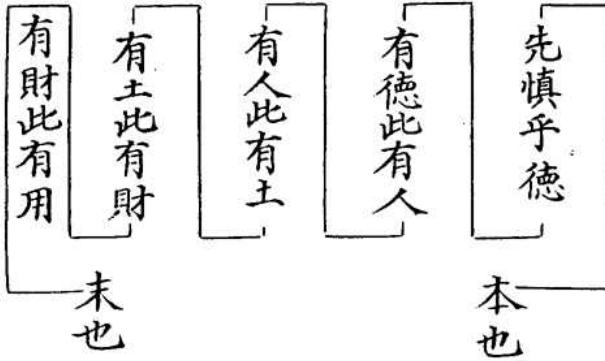 先慎乎徳
有徳此有人
有人此有土
有土此有財
有財此有用
本也
末也